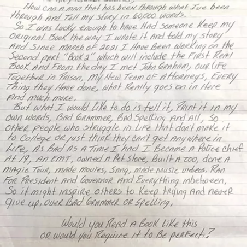 How can a man that has been through what I've been
through and Tell my Story in 60,000 words.
So I was lucky enough to have had someone Keep my
Original Book the way I wrote it and told my story
And Since March of 2021 I Have Been working on the
Second part "Book 2" which will include the First Event
Book And From the day I met John Graham, our Life
Together in Prison, My New Team of Attorneys, Every
Thing they Have done, what Really goes on in Here
And much more.
But what I would like to do is tell it, Paint it in my
own words, Bad Grammer, Bad Spelling And All, So
other People who struggle in Life that don't make it
to College or just think they can't get anywhere in
Life, As Bad as a Time I had I Became a Police Chief
AT 19, An EMT, owned a Pet Store, Built a Zoo, done a
Magic Tour, made Movies, Song, made music videos, Ran
For President and Governor And Everything inbetween,
So it might inspire others to Keep trying And Never
give up, over Bad Grammer or Spelling.
Would you Read a Book like this
or would you Require it to be perfect?